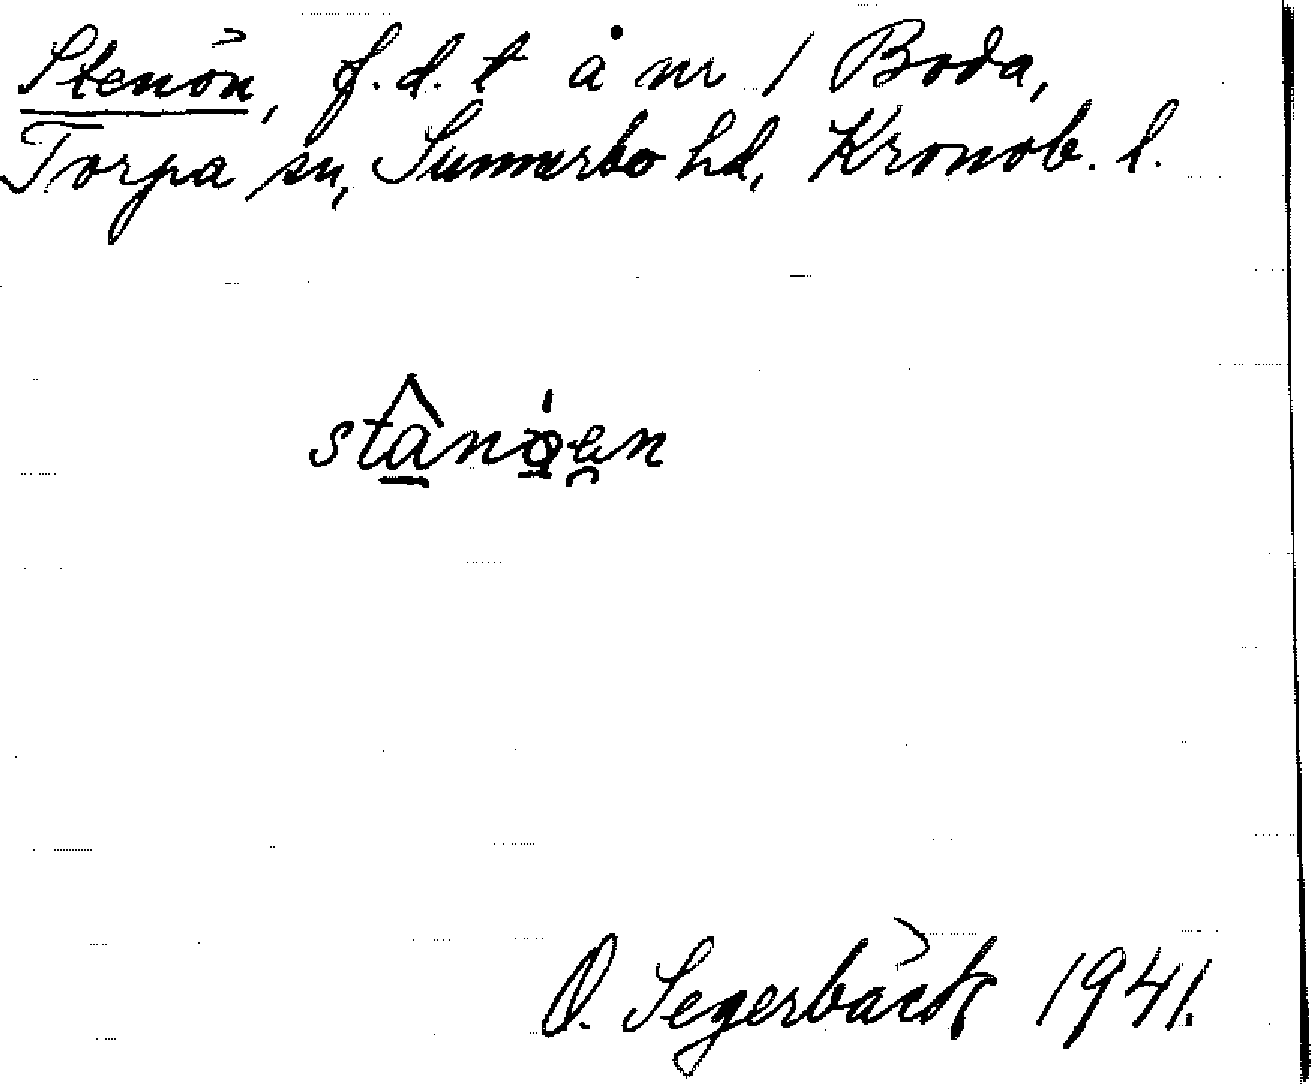 Stenön, f.d. t å nr 1 Boda,
Torpa sn, Sunnerbo hd, Kronob. l.
O. Segerbäck 1941.